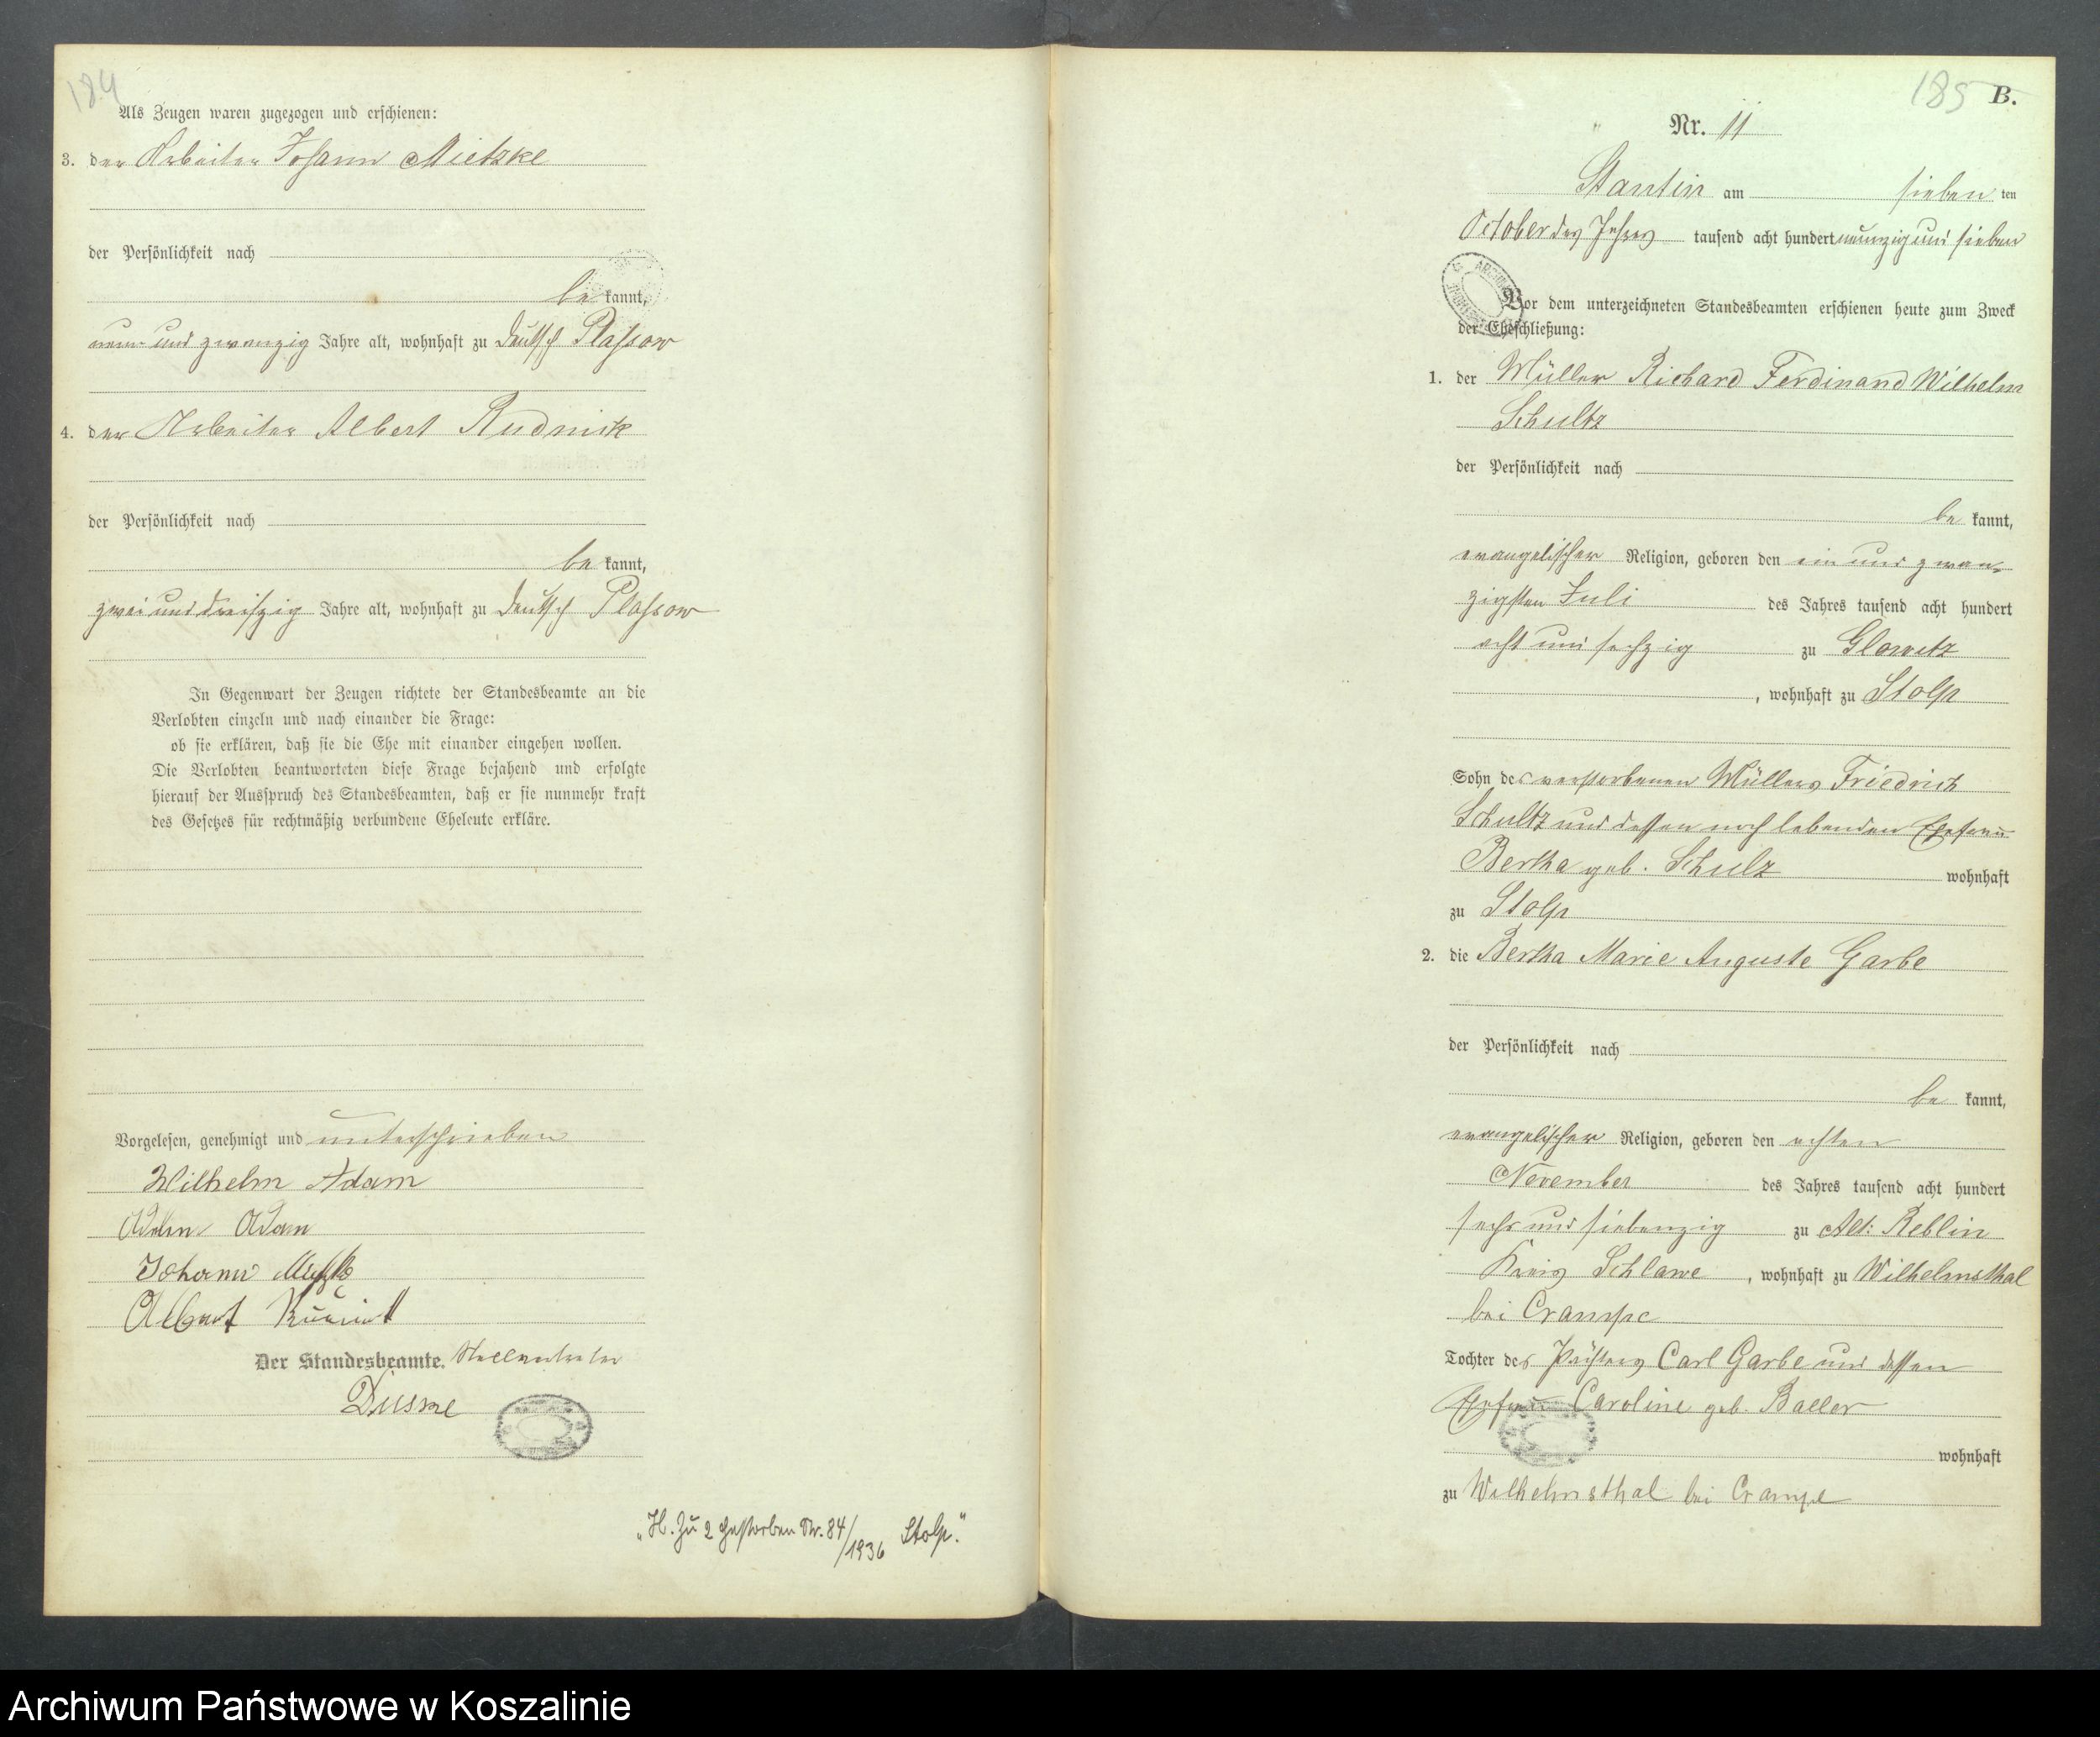 184
Als Zeugen waren zugezogen und erschienen:
3. der Arbeiter Johann Mietzke
der Persönlichkeit nach
be kannt,
neun und zwanzig Jahre alt, wohnhaft zu Deutsch Plassow
4. der Arbeiter Albert Rudnick
der Persönlichkeit nach
be kannt,
zwei und dreißzig Jahre alt, wohnhaft zu Deutsch Plassow
In Gegenwart der Zeugen richtete der Standesbeamte an die
Verlobten einzeln und nach einander die Frage:
ob sie erklären, daß sie die Ehe mit einander eingehen wollen.
Die Verlobten beantworteten diese Frage bejahend und erfolgte
hierauf der Ausspruch des Standesbeamten, daß er sie nunmehr kraft
des Gesetzes für rechtmäßig verbundene Eheleute erkläre.
Vorgelesen, genehmigt und unterschrieben
Wilhelm Adam
Adam
Johann
Albert
Der Standesbeamte. Stellvertreter
"H. Zu 2 gestorben Nr. 84/1936 Stolp."
185 B.
Nr. 11
Stantin am sieben ten
October des Jahres tausend acht hundert neunzig und sieben
Vor dem unterzeichneten Standesbeamten erschienen heute zum Zweck
der Eheschließung:
1. der Müller Richard Ferdinand Wilhelm
Schultz
der Persönlichkeit nach
be kannt,
evangelischer Religion, geboren den ein und zwan-
zigsten Juli des Jahres tausend acht hundert
acht und sechzig zu Glowitz
, wohnhaft zu Stolp
Sohn des verstorbenen Müllers Friedrich
Schultz und dessen noch lebenden Ehefrau
Bertha geb. Schulz wohnhaft
zu Stolp
2. die Bertha Marie Auguste Garbe
der Persönlichkeit nach
be kannt,
evangelischer Religion, geboren den achten
November des Jahres tausend acht hundert
sechs und siebenzig zu Alt: Reblin
Kreis Schlawe, wohnhaft zu Wilhelmsthal
bei Crampe
Tochter des Pächters Carl Garbe und dessen
Ehefrau Caroline geb. Baller
wohnhaft
zu Wilhelmsthal bei Crampe
Archiwum Państwowe w Koszalinie